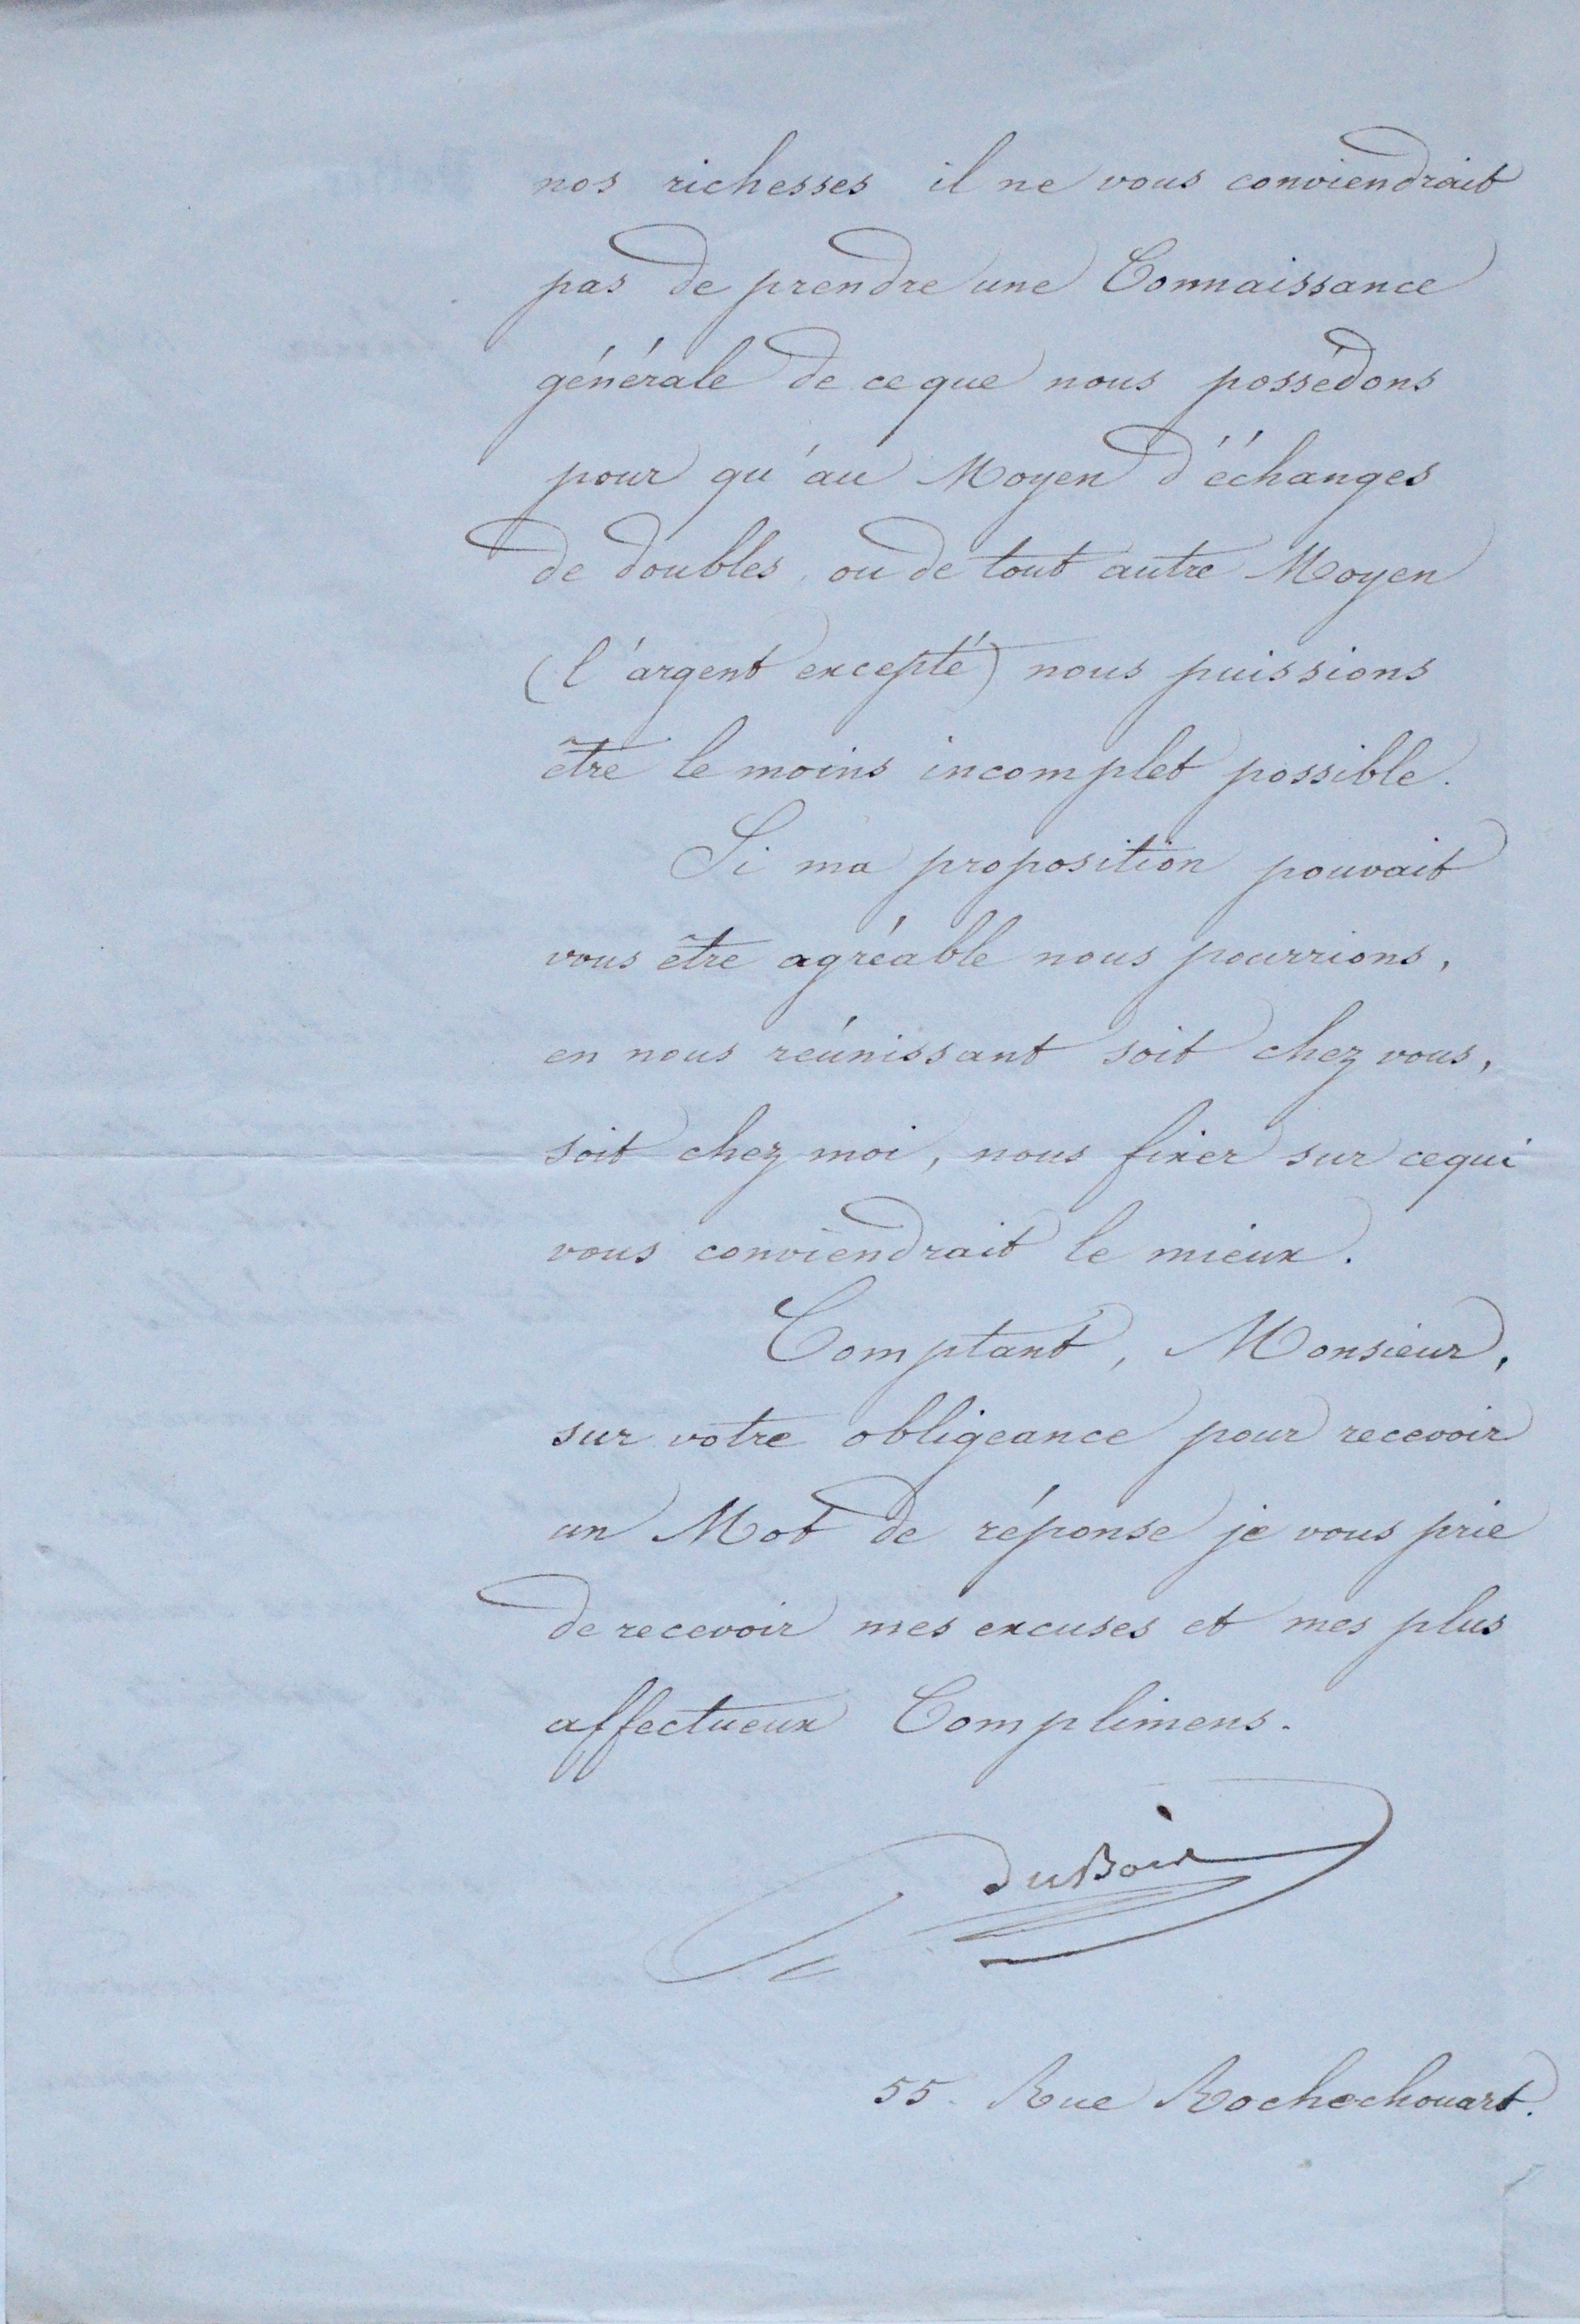 nos richesses il ne vous conviendrait
pas de prendre une Connaissance
générale de ce que nous possédons
pour qu'au Moyen d'échanges
de doubles, ou de tout autre Moyen
(l'argent excepté) nous puissions
être le moins incomplet possible.
Si ma proposition pouvait
vous être agréable nous pourrions,
en nous réunissant soit chez vous,
soit chez moi, nous fixer sur ce qui
vous conviendrait le mieux.
Comptant, Monsieur,
sur votre obligeance pour recevoir
un Mot de réponse je vous prie
de recevoir mes excuses et mes plus
affectueux Complimens.
duBois
55. Rue Rochechouart.